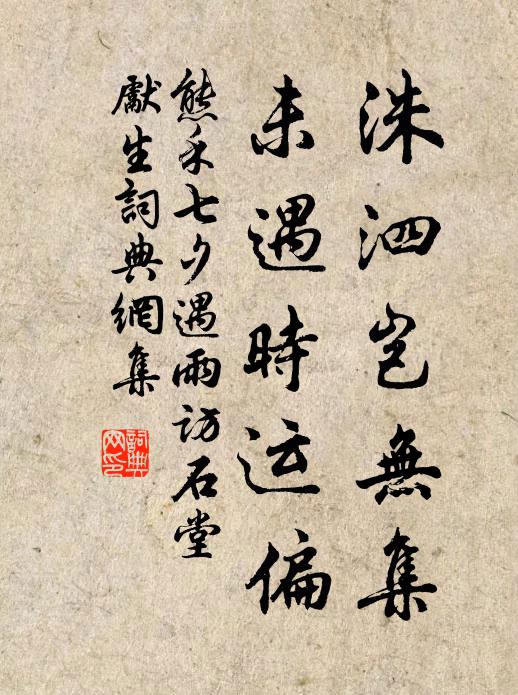 洙泗岂無集
未遇時运偏
熊禾七夕遇雨访石堂
獻生詞典網集
詞典网印